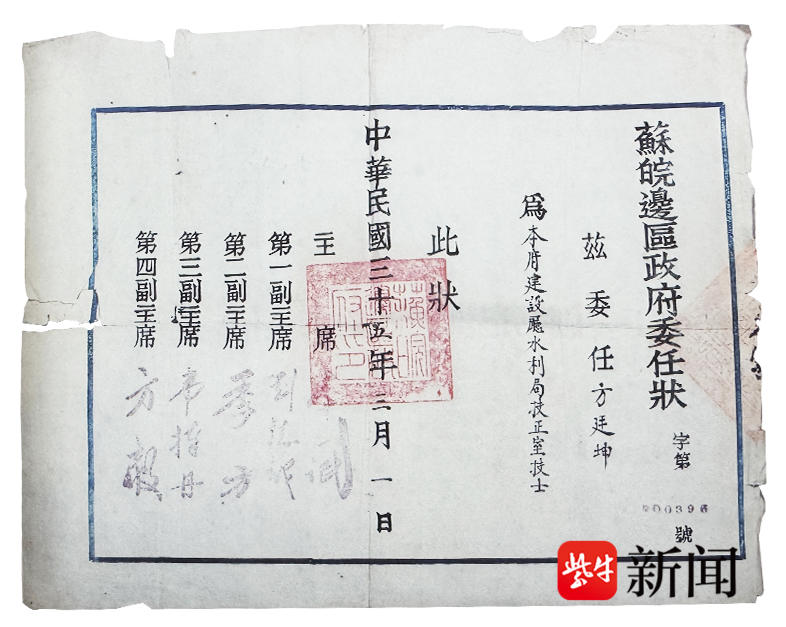 蘇皖邊區政府委任狀
字第
號
茲委任方廷坤
爲本府建設廳水利局技正室技士
此狀
中華民國三十五年三月一日
主席
第一副主席
第二副主席 季方
第三副主席 韋捃丹
第四副主席 方毅
紫牛新闻